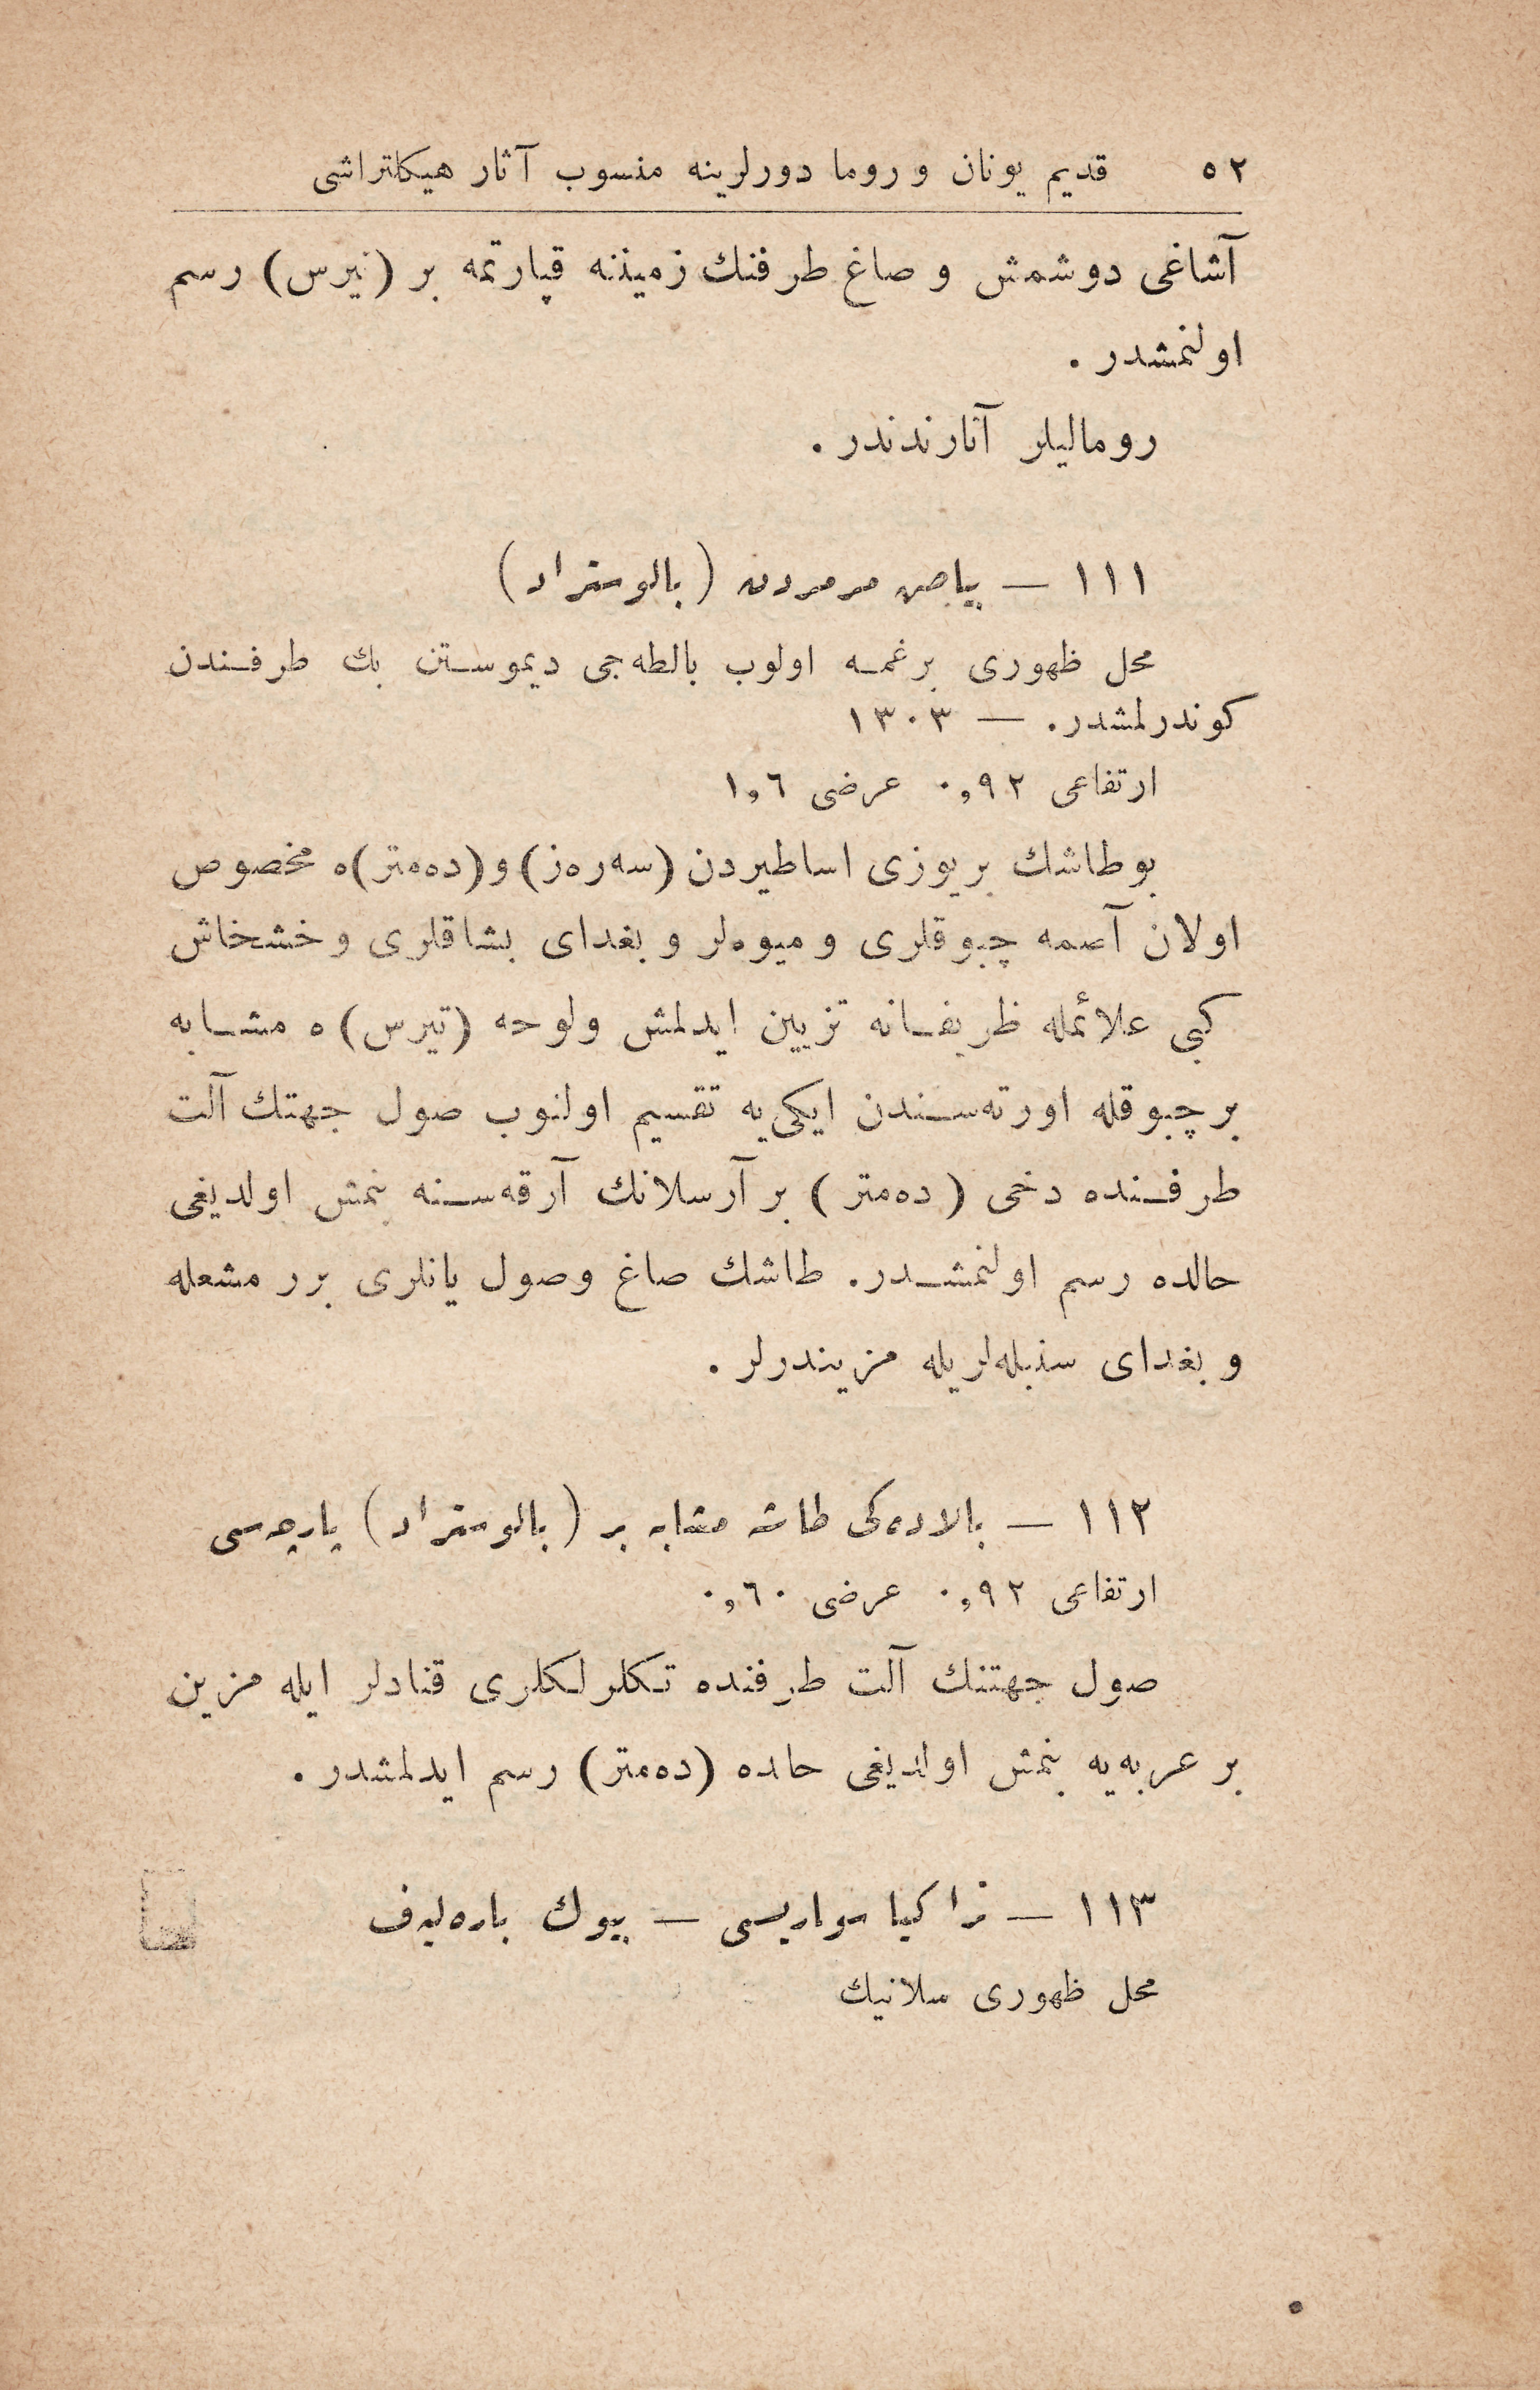 ٥٢ قديم يونان و روما دورلرينه منسوب آثار هيكلتراشى
آشاغى دوشمش و صاغ طرفنك زميننه قپارتمه بر (تيرس) رسم
اولنمشدر .
روماليلر آثارندندر .
١١١ — بياض مرمردن (بالوستراد)
محل ظهورى برغمه اولوب بالطه‌جى ديموستن بك طرفندن
كوندرلمشدر. — ١٣٠٣
ارتفاعى ٠,٩٢ عرضى ١,٦
بو طاشك بر يوزى اساطيردن (سه‌ره‌ز) و (ده‌متر)ه مخصوص
اولان آصمه چبوقلرى و ميوه‌لر و بغداى بشاقلرى و خشخاش
كبى علائمله ظريفانه تزيين ايدلمش ولوحه (تيرس)ه مشابه
بر چبوقله اورته‌سندن ايكى‌يه تقسيم اولنوب صول جهتك آلت
طرفنده دخى (ده‌متر) بر آرسلانك آرقه‌سنه بنمش اولديغى
حالده رسم اولنمشدر. طاشك صاغ وصول يانلرى برر مشعله
و بغداى سنبله‌لريله مزيندرلر .
١١٢ — بالاده‌كى طاشه مشابه بر (بالوستراد) پارچه‌سى
ارتفاعى ٠,٩٢ عرضى ٠,٦٠
صول جهتنك آلت طرفنده تكلرلكلرى قنادلر ايله مزين
بر عربه‌يه بنمش اولديغى حاده (ده‌متر) رسم ايدلمشدر .
١١٣ — تراكيا سواريسى — بيوك باره‌ليه‌ف
محل ظهورى سلانيك